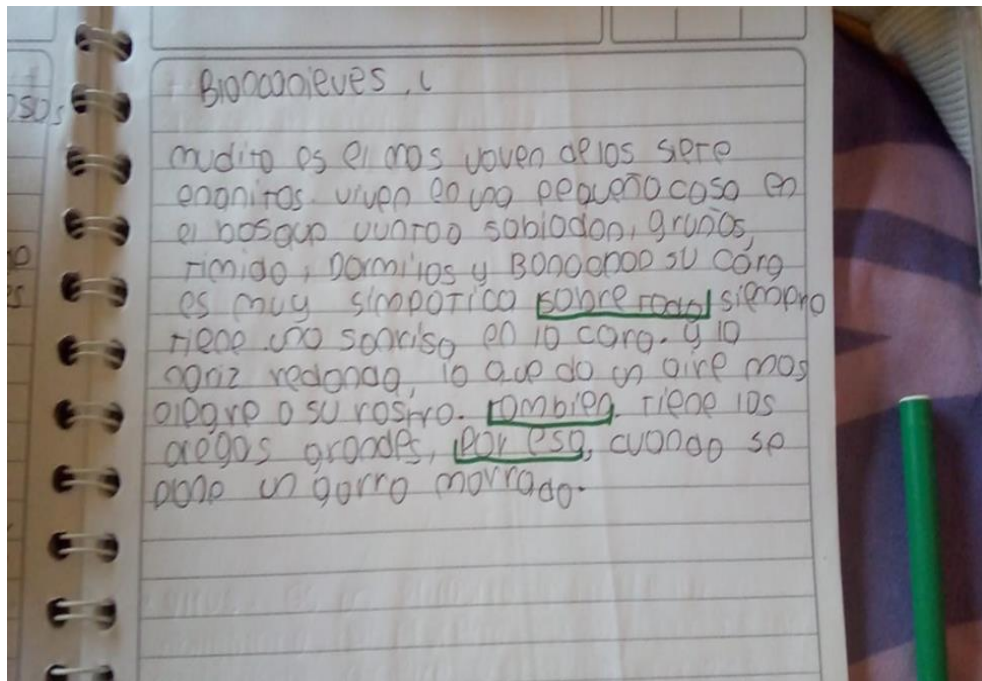 Blancanieves, l
mudito es el mas joven de los siete
enanitos. viven en una pequeña casa en
el bosque juntoo sabiadon, gruños,
timido, Dormilos y Bonachoo su carg
es muy simpatico sobre todo siempre
tiene una sonrisa en la cara. y la
nariz redonda, lo que da un aire mas
alegre a su rostro. tambien. tiene las
oregas grandes, por eso, cuando se
pone un gorro morrado.
osos